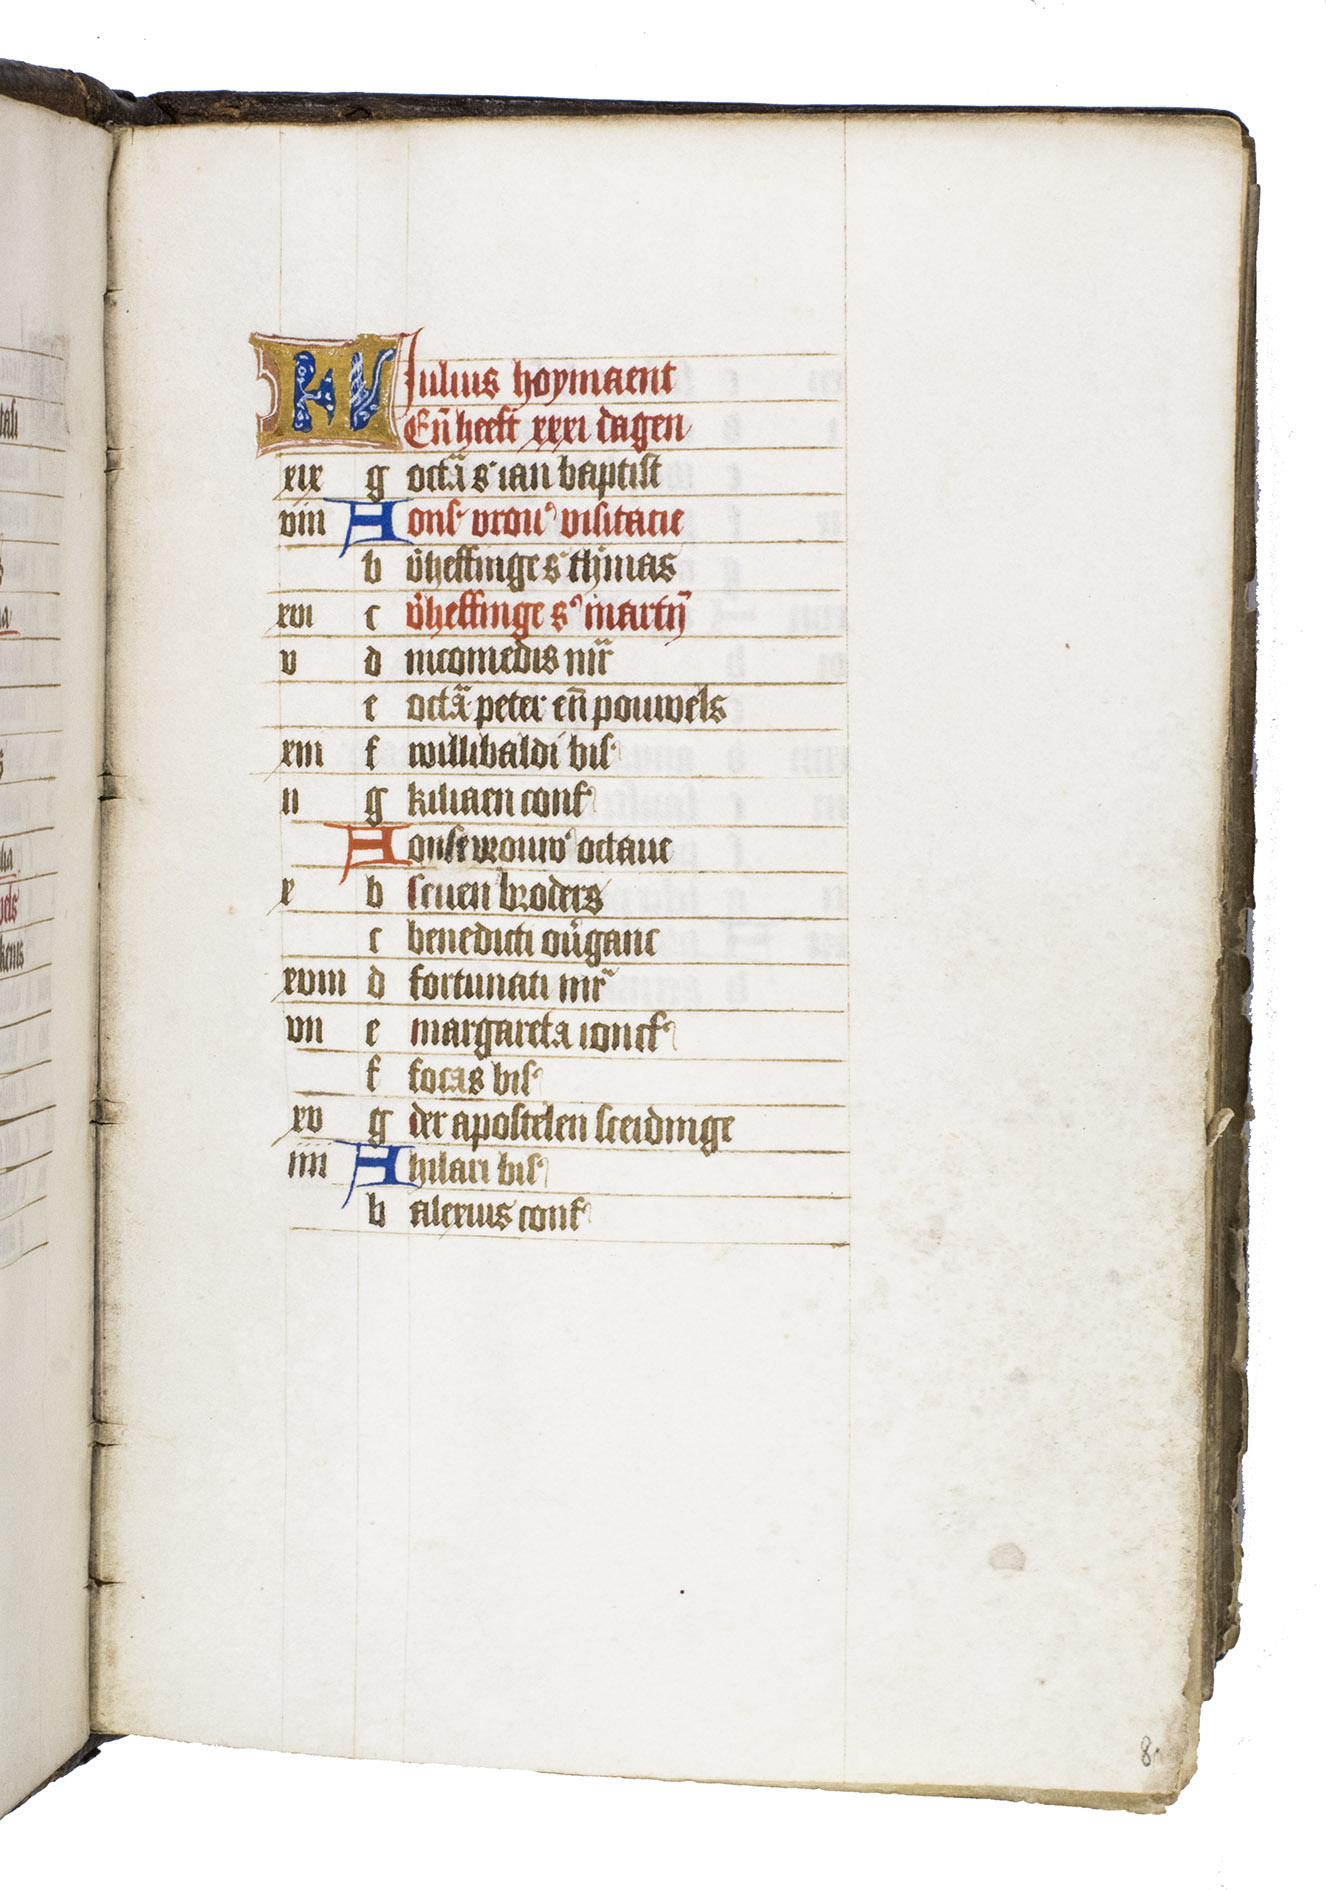 KL Julius hoymaent
En̄ heeft xxxi dagen
xix g octā s ian baptist
viii A ons vrou' visitacie
b v̄heffinge s' thomas
xvi c v̄heffinge s' martȳ
v d nicomedis mr̄
e octā peter en̄ pouwels
xiii f willibaldi bis'
ii g kiliaen conf'
A onse vrouw' octaue
x b seuen broders
c benedicti ou̅ganc
xviii d fortunati mr̄
vii e margareta ioncf'
f focas bis'
xv g der apostelen sceidinge
iiii A hilari bis'
b alexius conf'
8